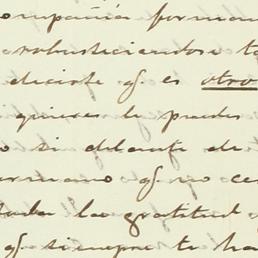 ompañía forman
robusteciendose t
decirte q es otro
quieres le puedes
o si delante de
ermano q no ce
toda la gratitud
q siempre te ha